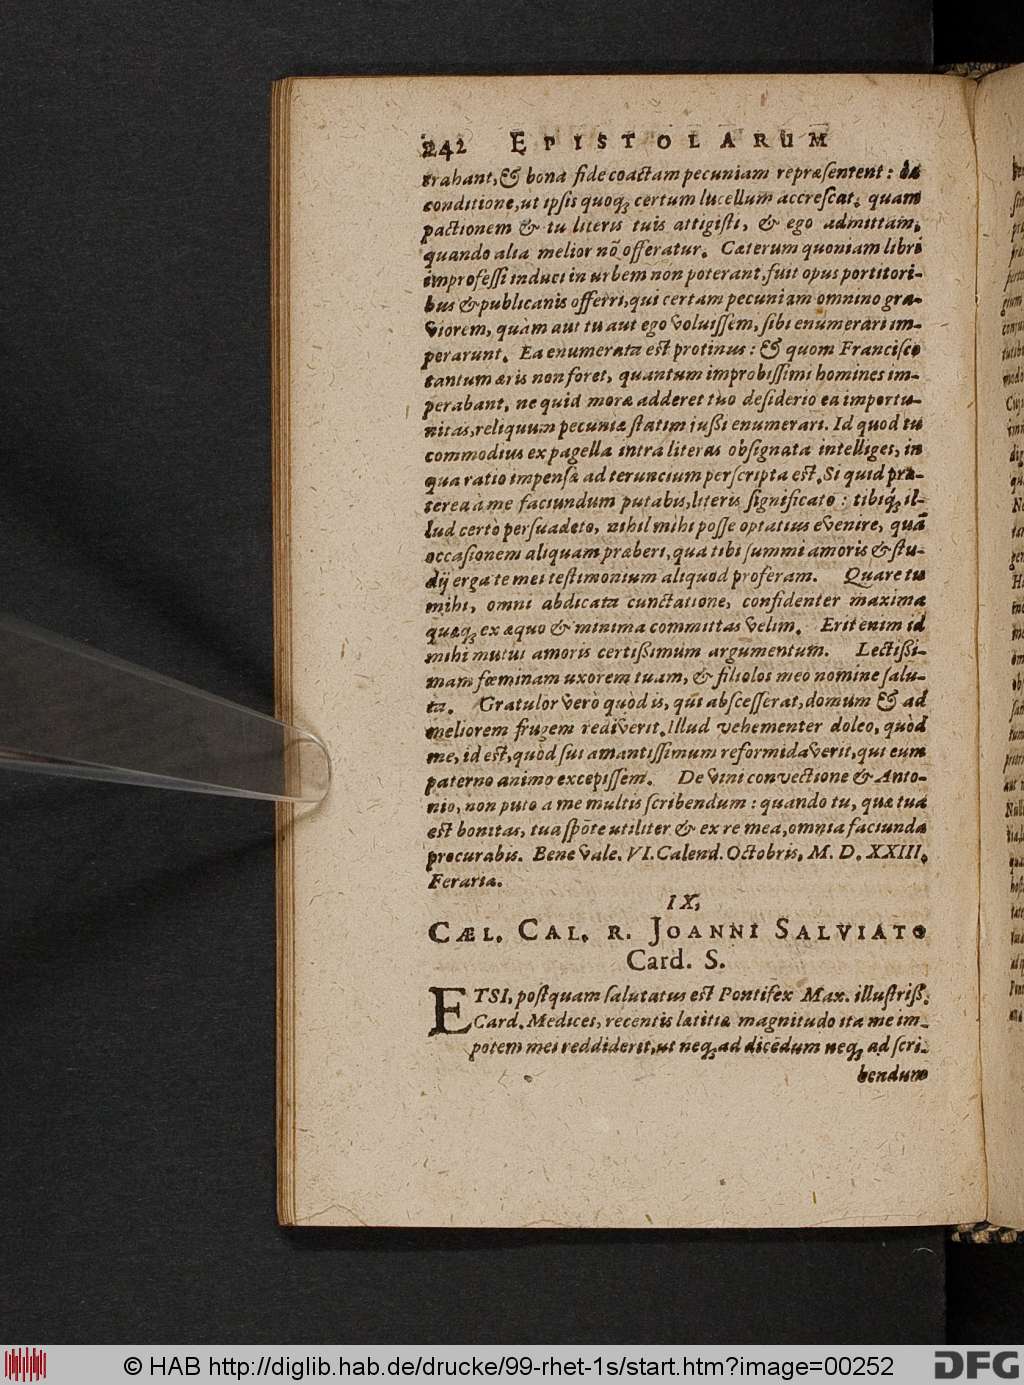 242 EPISTOLARUM
trahant, & bona fide coactam pecuniam repræsentent: ea
conditione, ut ipsis quoq; certum lucellum accrescat: quam
pactionem & tu literis tuis attigisti, & ego admittam,
quando alia melior nõ offeratur. Cæterum quoniam libri
improfessi induci in urbem non poterant, fuit opus portitori-
bus & publicanis offerri, qui certam pecuniam omnino gra-
viorem, quàm aut tu aut ego voluissem, sibi enumerari im-
perarunt. Ea enumerata est protinus: & quom Francisco
tantum æris non foret, quantum improbissimi homines im-
perabant, ne quid moræ adderet tuo desiderio ea importu-
nitas, reliquum pecuniæ statim jussi enumerari. Id quod tu
commodius ex pagella intra literas obsignata intelliges, in
qua ratio impensæ ad teruncium perscripta est. Si quid præ-
terea à me faciundum putabis, literis significato: tibiq; il-
lud certò persuadeto, nihil mihi posse optatius evenire, quã
occasionem aliquam præberi, qua tibi summi amoris & stu-
dij erga te mei testimonium aliquod proferam. Quare tu
mihi, omni abdicata cunctatione, confidenter maxima
quæq; ex æquo & minima committas velim. Erit enim id
mihi mutui amoris certissimum argumentum. Lectissi-
mam fœminam uxorem tuam, & filiolos meo nomine salu-
ta. Gratulor verò quòd is, qui abscesserat, domum & ad
meliorem frugem rediverit. Illud vehementer doleo, quòd
me, id est, quòd sui amantissimum reformidaverit, qui eum
paterno animo excepissem. De vini convectione & Anto-
nio, non puto a me multis scribendum: quando tu, quæ tua
est bonitas, tua spõte utiliter & ex re mea, omnia faciunda
procurabis. Bene vale. VI. Calend. Octobris, M. D. XXIII.
Feraria.
IX.
CÆL. CAL. R. JOANNI SALVIATO
Card. S.
ETSI, postquam salutatus est Pontifex Max. illustriss.
Card. Medices, recentis lætitiæ magnitudo ita me im-
potem mei reddiderit, ut neq; ad dicẽdum neq; ad scri-
bendum
© HAB http://diglib.hab.de/drucke/99-rhet-1s/start.htm?image=00252
DFG